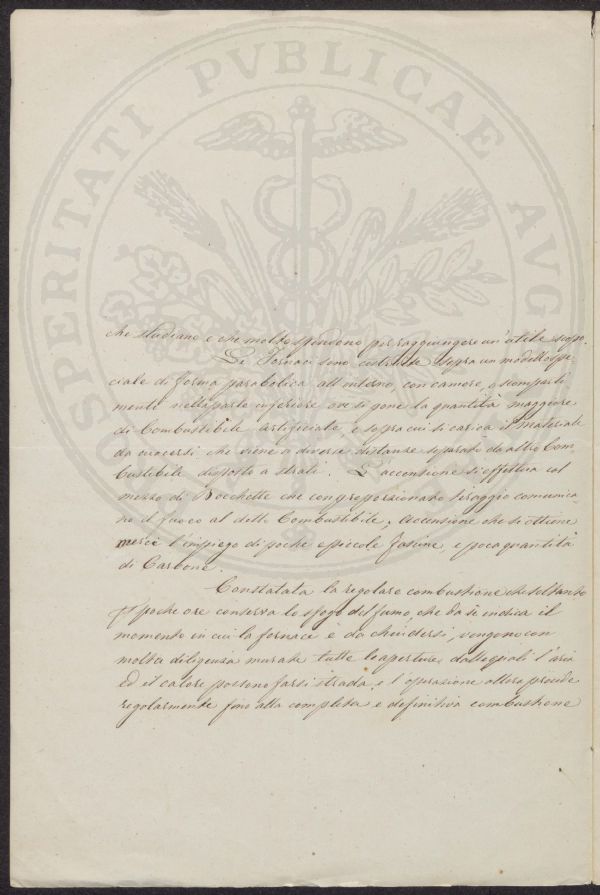 PROSPERITATI PVBLICAE AVG
che studiano e che molto spendono per raggiungere un' utile scopo.
Le Fornaci sono costruite sopra un modello spe
ciale di forma parabolica all' interno, con camere, o scomparti
menti nella parte inferiore ove si pone la quantità maggiore
di Combustibile artificiale e sopra cui si carica il materiale
da cuocersi che viene a diverse distanze separato da altro Com
bustibile disposto a strati. L' accensione si effettua col
mezzo di Bocchette che con proporzionato tiraggio comunica
no il fuoco al detto Combustibile, accensione che si ottiene
mercè l' impiego di poche e piccole fascine, e poca quantità
di Carbone.
Constatata la regolare combustione che soltanto
poche ore conserva lo sfogo del fumo che da se indica il
momento in cui la fornace è da chiudersi, vengono con
molta diligenza murate tutte le aperture, dalle quali l' aria
ed il calore possono farsi strada, e l' operazione allora procede
regolarmente fino alla completa e definitiva combustione